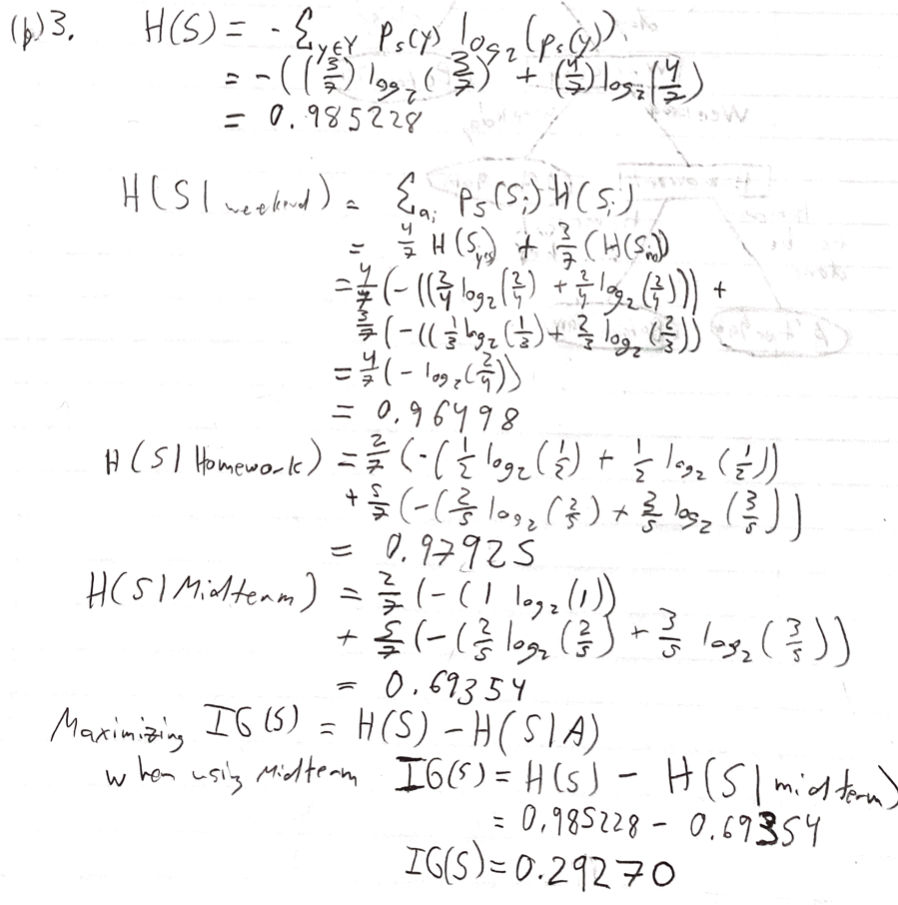 (b) 3. H(S) = - Σ_{y∈Y} P_S(y) log_2 (P_S(y))
= - ( (3/7) log_2 (3/7) + (4/7) log_2 (4/7)
= 0.985228
H(S| weekend) = Σ_{a_i} P_S(S_i) H(S_i)
= 4/7 H(S_yes) + 3/7 (H(S_no))
= 4/7 (-((2/4 log_2 (2/4) + 2/4 log_2 (2/4))) +
3/7 (-((1/3 log_2 (1/3) + 2/3 log_2 (2/3))
= 4/7 (- log_2 (2/4))
= 0.96498
H(S| Homework) = 2/7 (-(1/2 log_2 (1/2) + 1/2 log_2 (1/2))
+ 5/7 (-(2/5 log_2 (2/5) + 3/5 log_2 (3/5)))
= 0.97925
H(S| Midterm) = 2/7 (-(1 log_2 (1))
+ 5/7 (-(2/5 log_2 (2/5) + 3/5 log_2 (3/5))
= 0.69354
Maximizing IG(S) = H(S) - H(S|A)
when using Midterm IG(S) = H(S) - H(S| midterm)
= 0.985228 - 0.69354
IG(S) = 0.29270